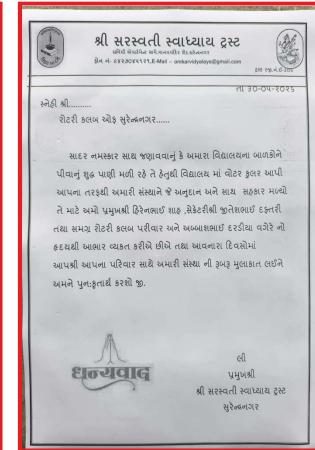 શ્રી સરસ્વતી સ્વાધ્યાય ટ્રસ્ટ
ફોન નં- ૯૪૨૭૦૪૫૧૨૧,E-Mail – omkarvidyalaya@gmail.com
તા ૩૦-૦૫-૨૦૨૫
સ્નેહી શ્રી..........
રોટરી કલબ ઓફ સુરેન્દ્રનગર......
સાદર નમસ્કાર સાથ જણાવવાનું કે અમારા વિદ્યાલયના બાળકોને
પીવાનું શુદ્ધ પાણી મળી રહે તે હેતુથી વિદ્યાલય માં વોટર કુલર આપી
આપના તરફથી અમારી સંસ્થાને જે અનુદાન અને સાથ સહકાર મળ્યો
તે માટે અમો પ્રમુખશ્રી હિરેનભાઈ શાહ ,સેક્રેટરીશ્રી જીતેશભાઈ દફ્તરી
તથા સમગ્ર રોટરી કલબ પરીવાર અને અબ્બાશભાઈ દરડીયા વગેરે નો
હ્રદયથી આભાર વ્યકત કરીએ છીએ તથા આવનારા દિવસોમાં
આપશ્રી આપના પરિવાર સાથે અમારી સંસ્થા ની રૂબરૂ મુલાકાત લઈને
અમને પુન:કૃતાર્થ કરશો જી.
ધન્યવાદ
લી
પ્રમુખશ્રી
શ્રી સરસ્વતી સ્વાધ્યાય ટ્રસ્ટ
સુરેન્દ્રનગર